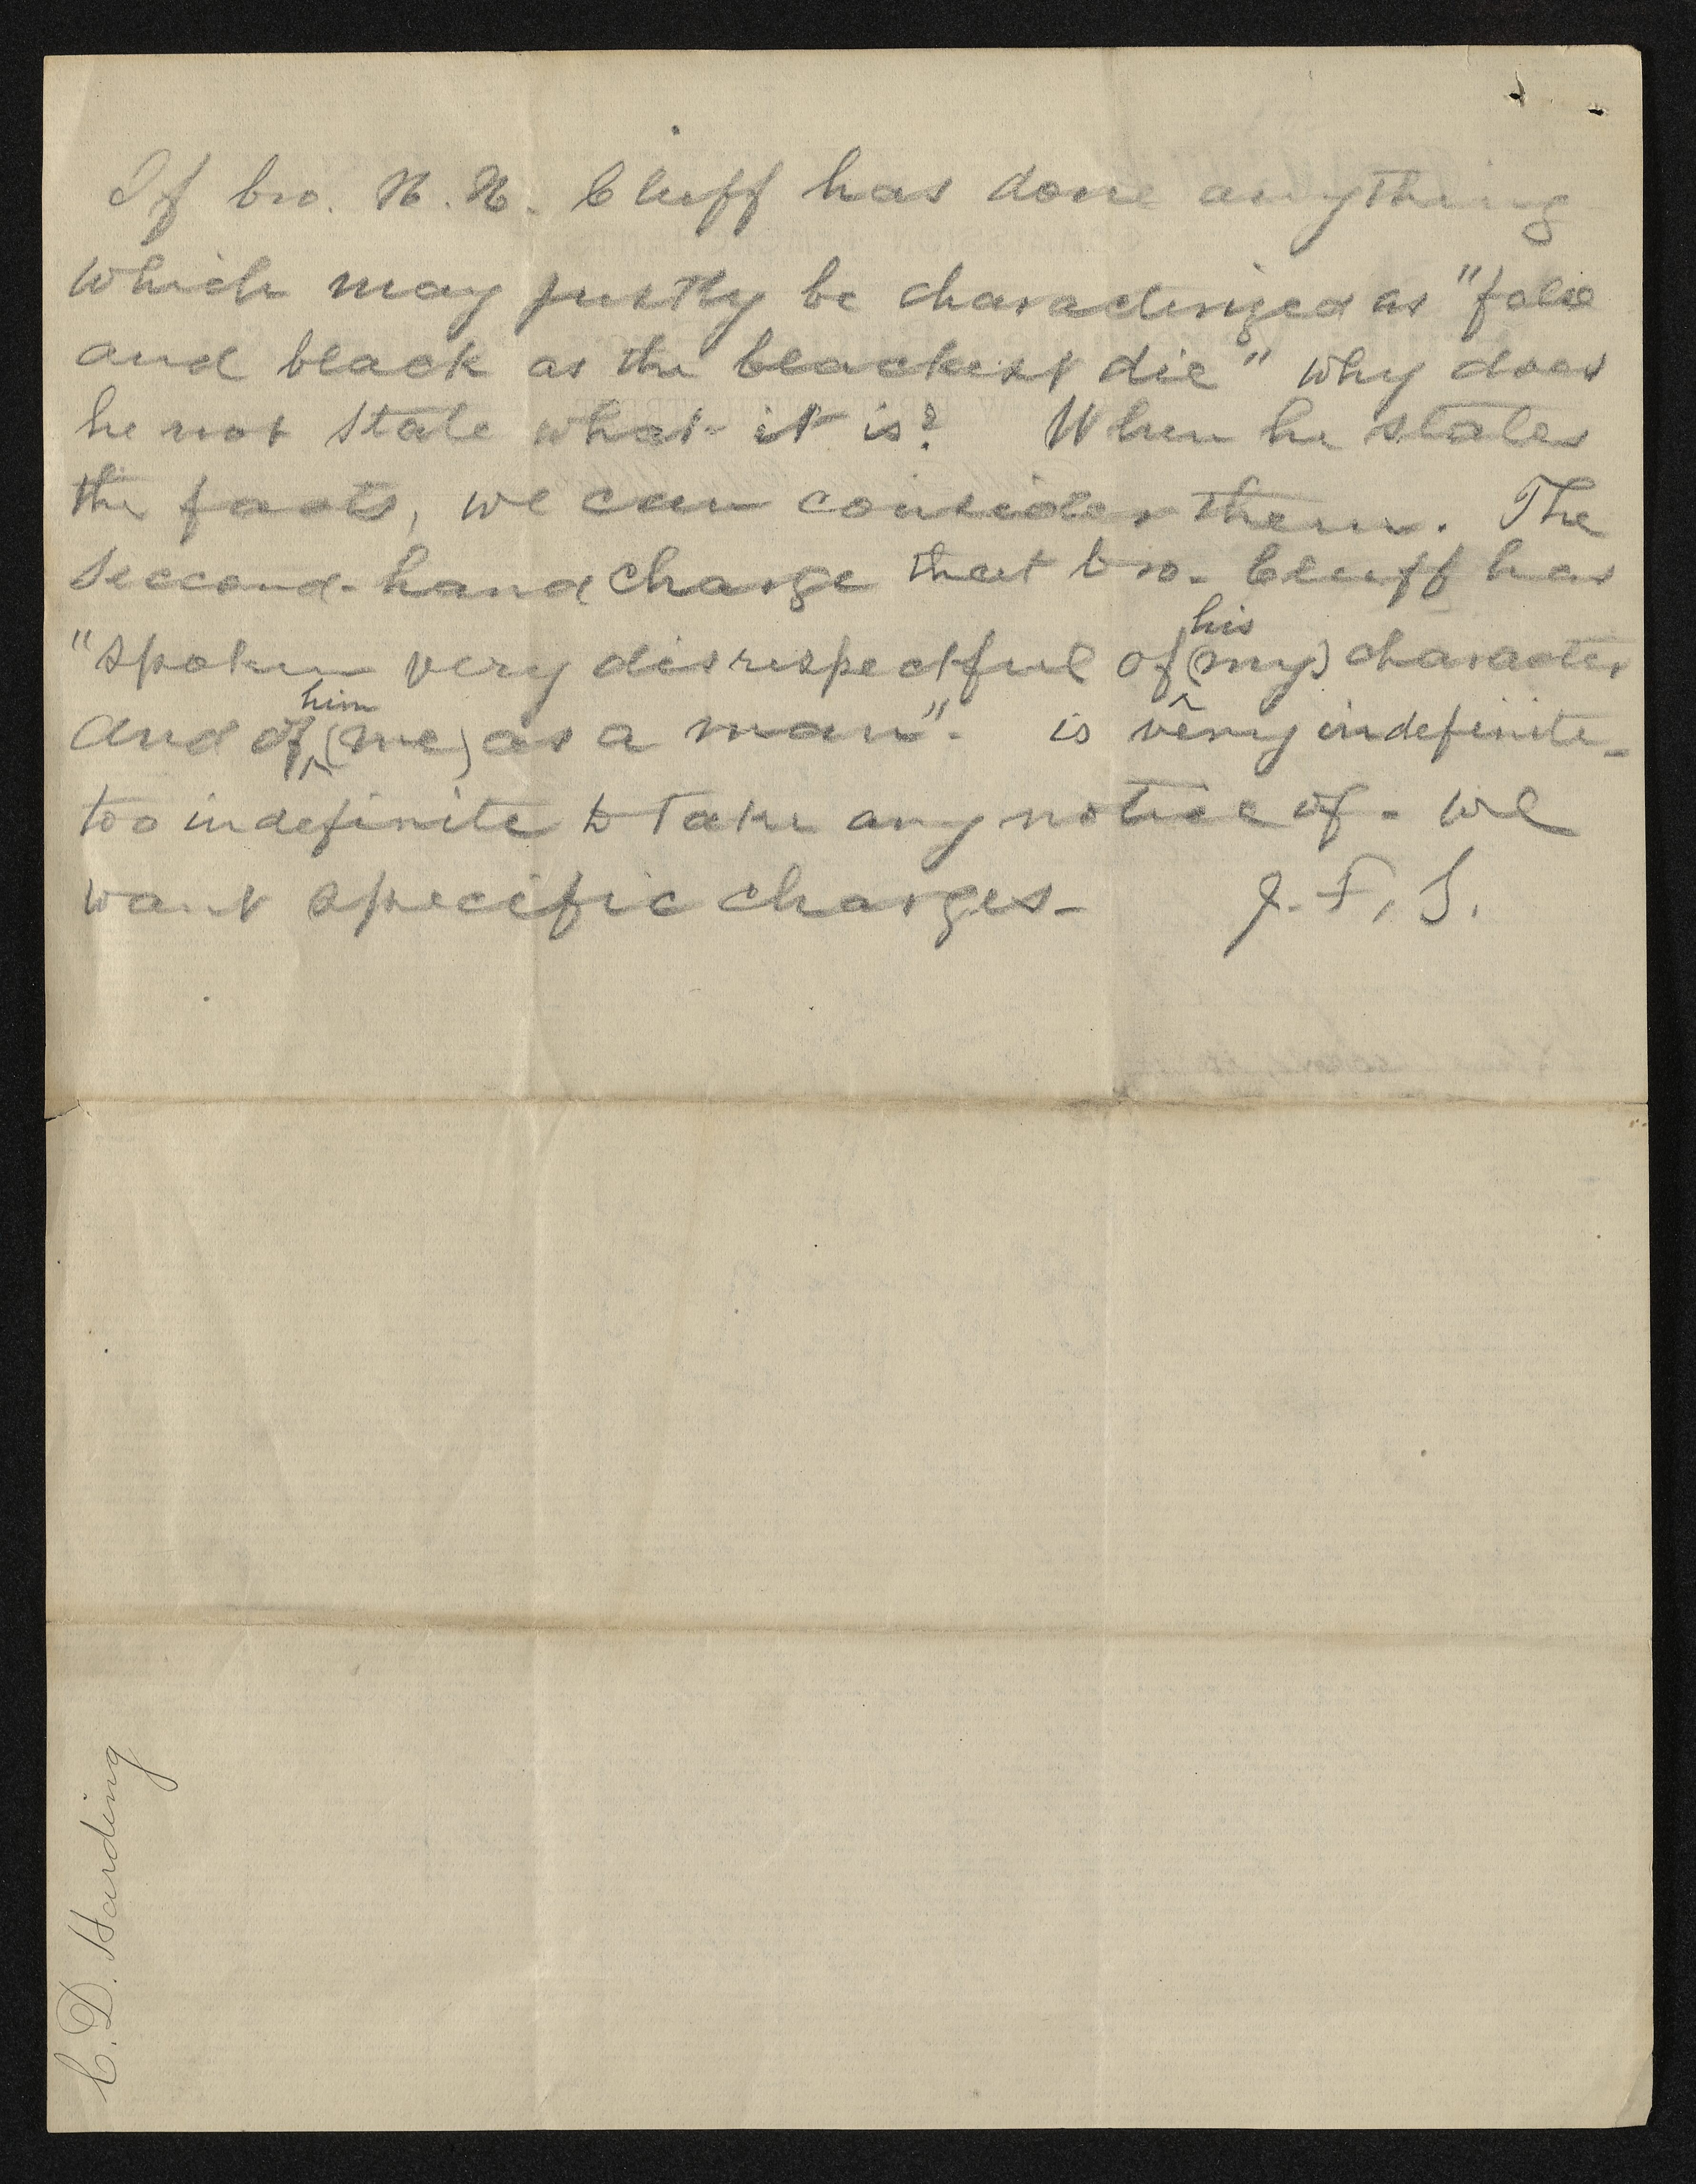 If bro. H. H. Cluff has done anything
which may justly be characterized as "false
and black as the blackest die" why does
he not state what it is? When he states
the facts, we can consider them. The
seccond-hand charge that bro. Cluff has
his
"spoken very disrespectful of (my) character
him
and of (me) as a man". is very indefinite-
too indefinite to take any notice of. we
want specific charges- J. F. S.
C. D. Harding